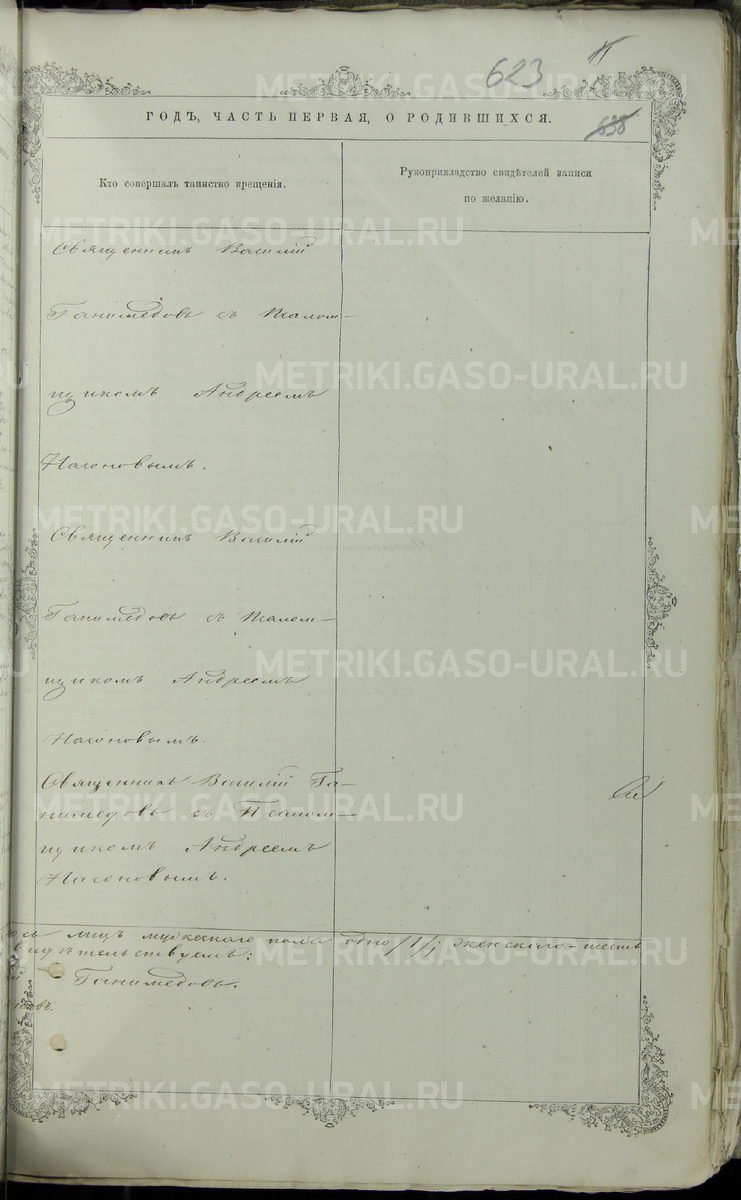 623
638
ГОДЪ, ЧАСТЬ ПЕРВАЯ, О РОДИВШИХСЯ.
Кто совершалъ таинство крещенія.
Рукоприкладство свидѣтелей записи
по желанію.
Священникъ Василій
Ганимедовъ съ Псалом-
щикомъ Андреемъ
Насоновымъ.
Священникъ Василій
Ганимедовъ съ Псалом-
щикомъ Андреемъ
Насоновымъ.
Священникъ Василій Га-
нимедовъ съ Псалом-
щикомъ Андреемъ
Насоновымъ.
лицъ мужескаго пола одно /1/; женскаго - шесть
свидѣтельствуемъ:
Ганимедовъ.
METRIKI.GASO-URAL.RU